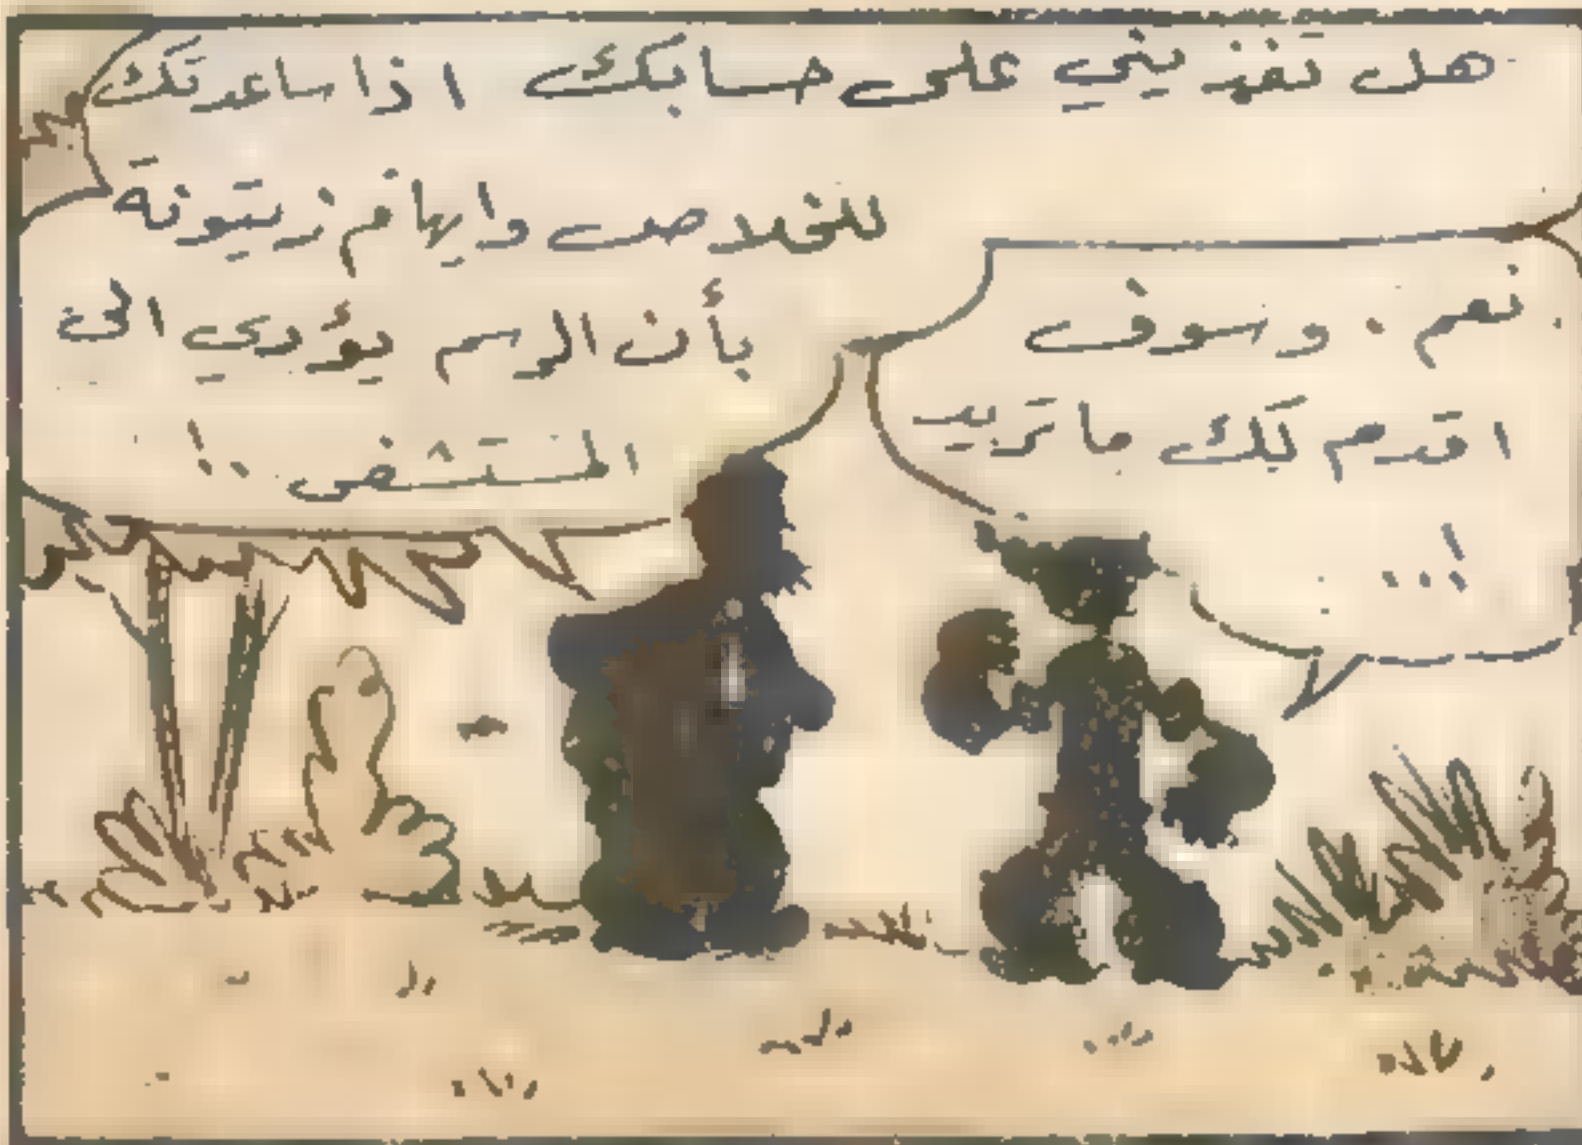 هل تغذيني على حسابك اذا ساعدتك
للخلاص وايهام زيتونة
بأن الرسم يؤدي الى
المستشفى ..!
نعم . وسوف
اقدم لك ما تريد
...!